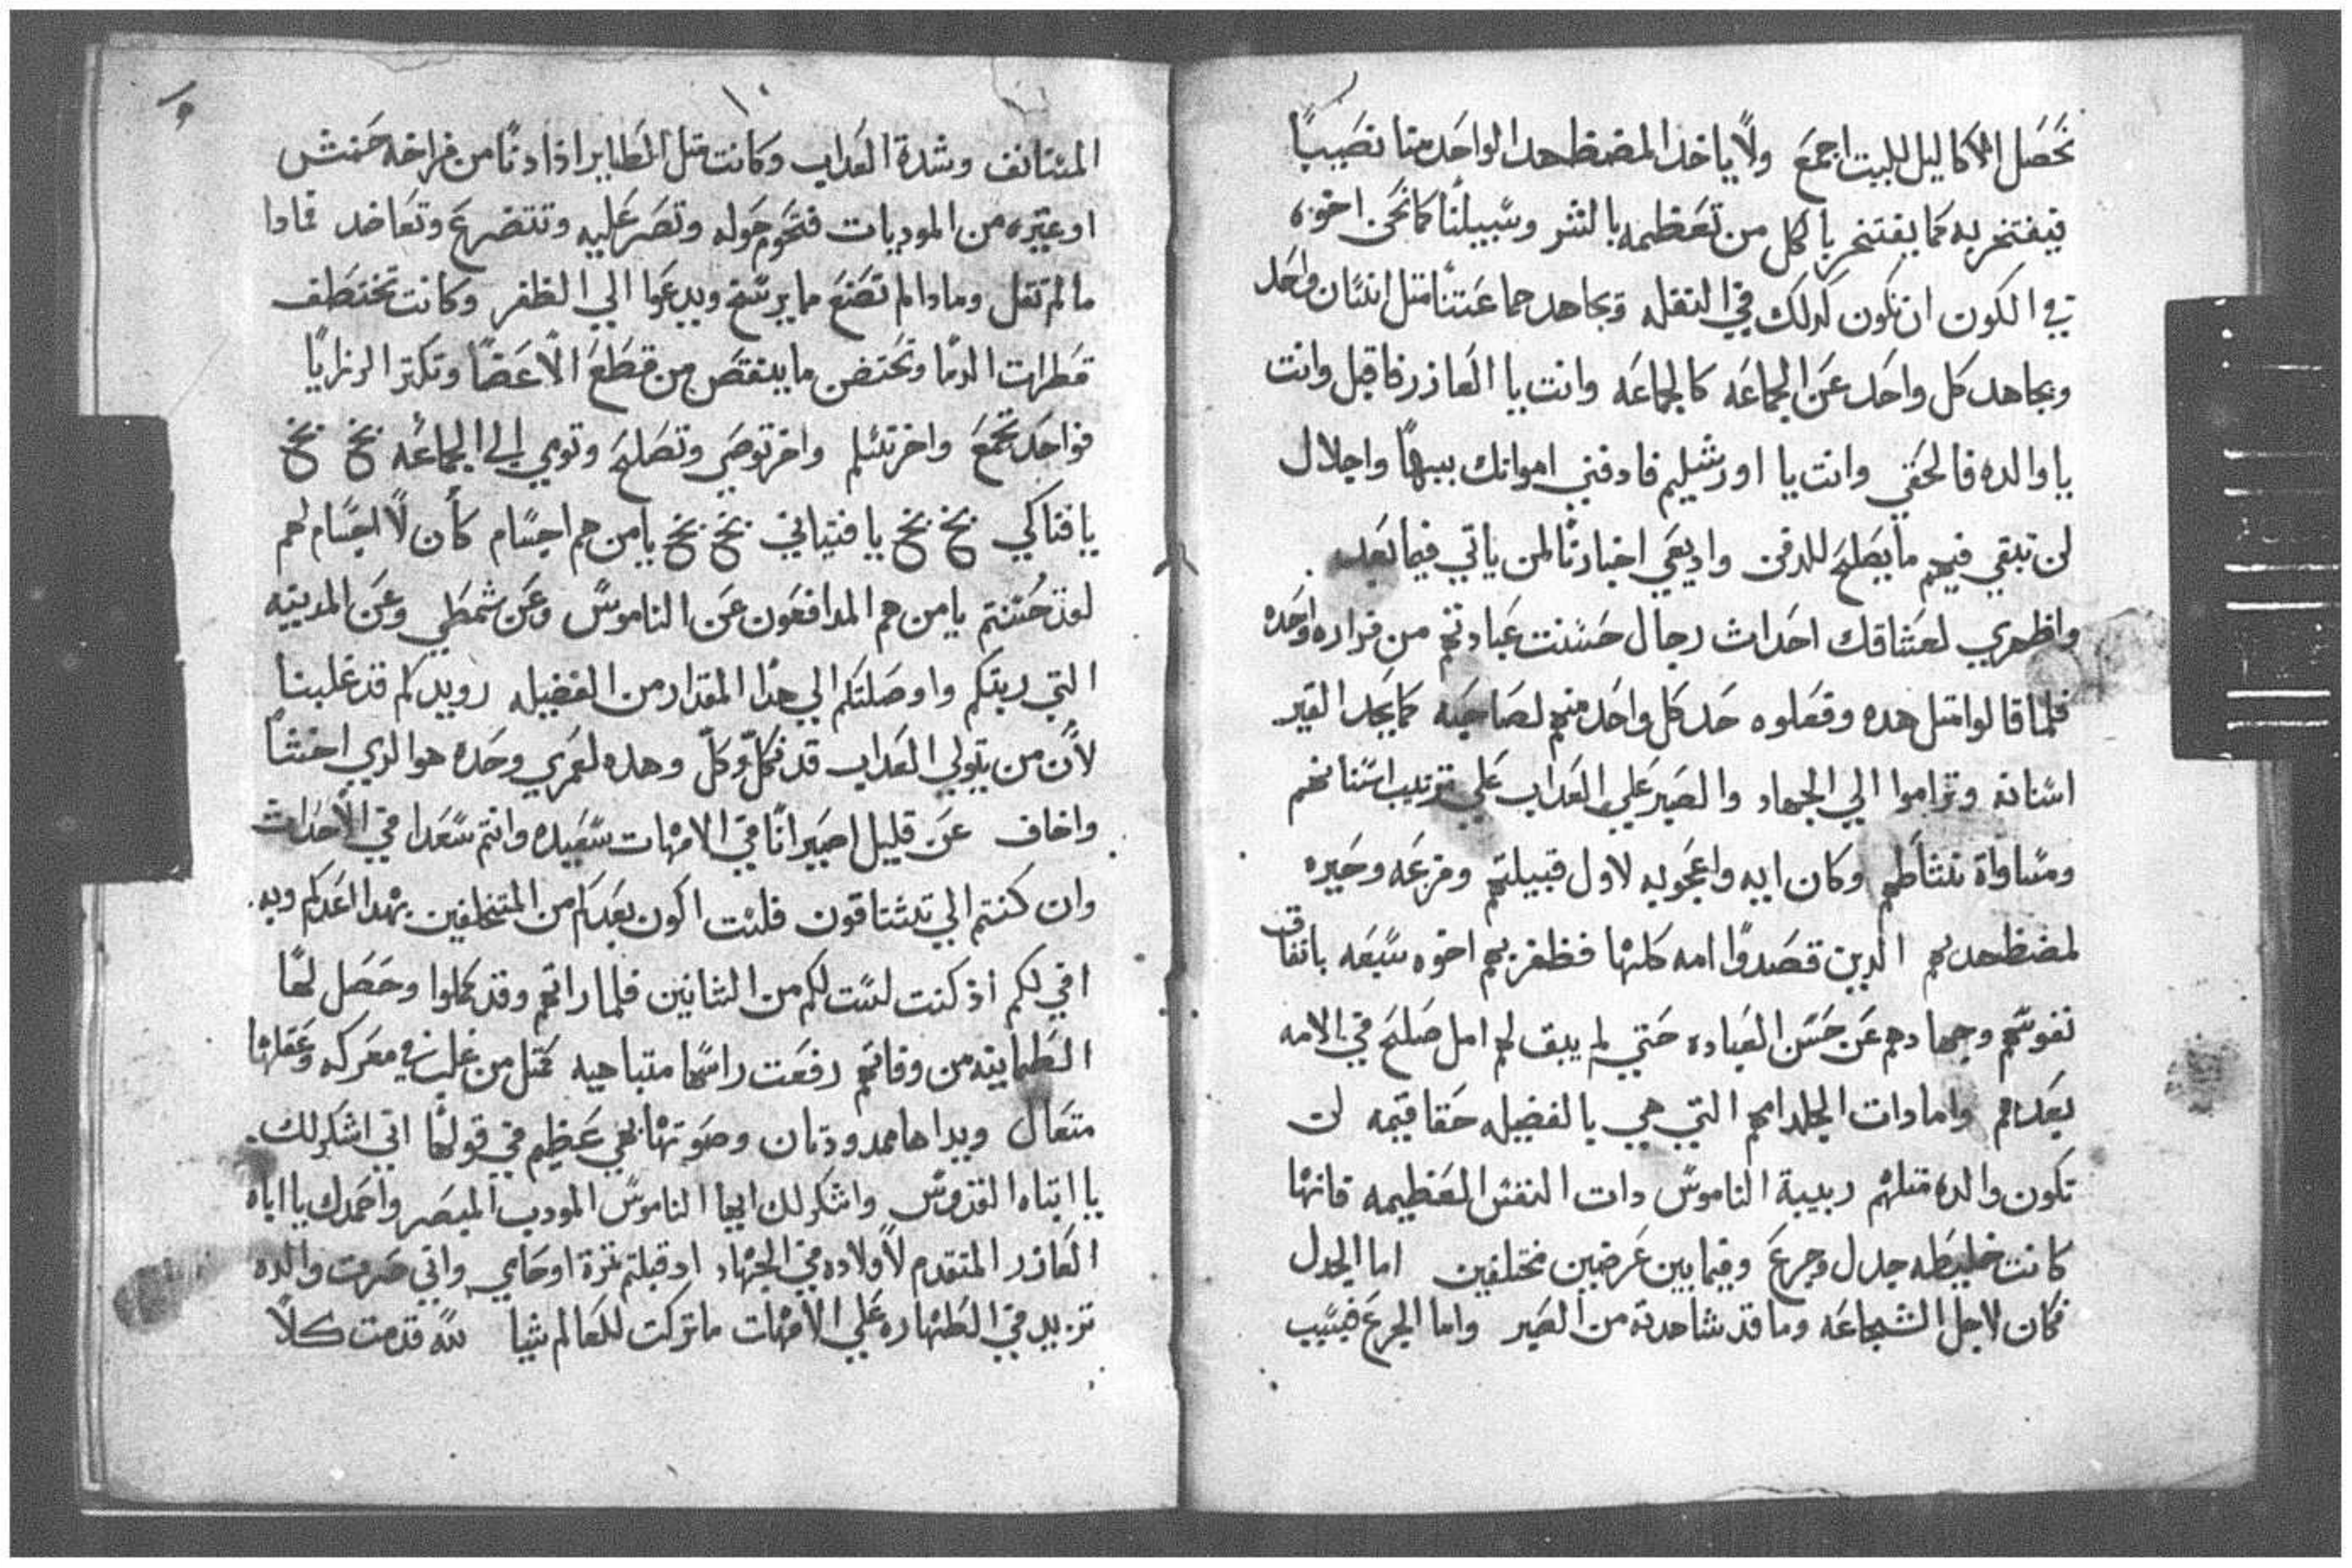 تحصل الاكاليل للبيت اجمع ولا ياخد المضطهد الواحد منا نصيبًا
فيفتخر به كما يفتخر بالكل من تعظيمه بالنثر وسبيلنا كما نحن اخوه
في الكون ان نكون كدلك في النقله ويجاهد جماعتنا متل انسان واحد
ويجاهد كل واحد عن الجماعه كالجماعه وانت يا العازر فاقبل وانت
يا والده فالحقي وانت يا اورشليم فادفني امواتك ببهاً واجلال
لن تبقي فيهم ما يصلح للدفن واديعي اخبارنا لمن ياتي فيما بعد
واظهري لعشاقك احداث رجال حسنت عبادتهم من قراره واحده
فلما قالوا متل هده وفعلوه حد كل واحد منهم لصاحبه كما يحد
اسنانه وتراموا الي الجهاد والصبر علي العداب علي ترتيب اسنانهم
ومساواة نشاطهم وكان ايه واعجوبه لاول قبيلتهم وفزعه وحيره
لمضطهديهم الدين قصدوا امه كلها فظفر بهم اخوه سبعه باتفاق
نفوسهم وجهادهم عن حسن العباده حتي لم يبق لهم امل صلح في الامه
بعدهم واما دات الجلد امهم التي هي بالفضيله حقا قيمه لن
تكون والده متلهم ربيبة الناموس دات النفس العظيمه فانها
كانت خليطه جدل وجزع وفيما بين عرضين مختلفين اما الجدل
فكان لاجل الشجاعه وما قد شاهدته من الصبر واما الجزع فسبب
١٠
المستانف وشدة العداب وكانت متل الطاير ادا دنا من فراخه حنش
او غيره من الموديات فتحوم حوله وتصر عليه وتتضرع وتعاضد فمادا
ما لم تقل ومادا لم تصنع مما يرسخ ويدعوا الي الظفر وكانت تختطف
قطرات الدما وتحتضن ما ينقص من قطع الاعضا وتكبر الرزايا
فواحد تجمع واخر تسلم واخر توصي وتصلح وتومي الي الجماعه بخ بخ
يا فتاكي بخ بخ يا فتياني بخ بخ يا من هم اجسام كأن لا اجسام لهم
لقد حسنتم يا من هم المدافعون عن الناموس وعن شمطي وعن المدينه
التي ربتكم واوصلتكم الي هدا المقدار من الفضيله رويدكم قد غلبنا
لأن من يتولي العداب قد فكلّ وكلّ وهده لعمري وحده هو الدي اختشا
واخاف عن قليل اصير انا في الامهات سعيده وانتم سعدا في الاحداث
وان كنتم الي تشتاقون فلست اكون بعدكم من المتخلفين بهدا اعدكم وبه
افي لكم اذ كنت لست لكم من الشانين فلما راتهم وقد كملوا وحصل لها
الطمانينه من وفاتهم رفعت راسها متباهيه كمتل من غلب في معركه وعقلها
متعال ويداها ممدودتان وصوتها بغي عظيم في قولها اني اشكر لك
يا ابتاه القدوس واشكر لك ايها الناموس المودب المبصر واحمدك يا اباه
العازر المتقدم لأولاده في الجهاد اد قبلتم ثمرة اوجاعي واني صرت والده
تزيد في الطهاره علي الامهات ما تركت للعالم شيا لله قدمت كلاً